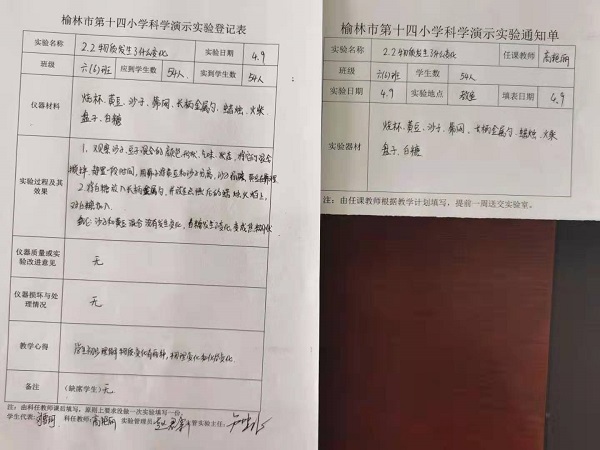 榆林市第十四小学科学演示实验登记表
实验名称 2.2物质发生了什么变化 实验日期 4.9
班级 六(6)班 应到学生数 54人 实到学生数 54人
仪器材料
烧杯、黄豆、沙子、筛网、长柄金属勺、蜡烛、火柴
盘子、白糖
实验过程及其
效果
1、观察沙子、豆子混合的颜色、
2、将白糖放入长柄金属勺、
沙子和黄豆混合没有发生变化、白糖发生了变化、变成
仪器质量或实
验改进意见
无
仪器损坏与处
理情况
无
教学心得
学生初步理解物质变化有两种,物理变化和化学变化.
备注 (缺席学生)无
注:由科任教师课后填写,原则上要求没做一次实验填写一份。
学生代表: 科任教师:高艳丽 实验管理员: 主管实验主任:
榆林市第十四小学科学演示实验通知单
实验名称 2.2物质发生了什么变化 任课教师 高艳丽
班级 六(6)班 学生数 54人
实验日期 4.9 实验地点 教室 填表日期 4.9
实验器材
烧杯、黄豆、沙子、筛网、长柄金属勺、蜡烛、火柴
盘子、白糖
注:由任课教师根据教学计划填写,提前一周送交实验室。